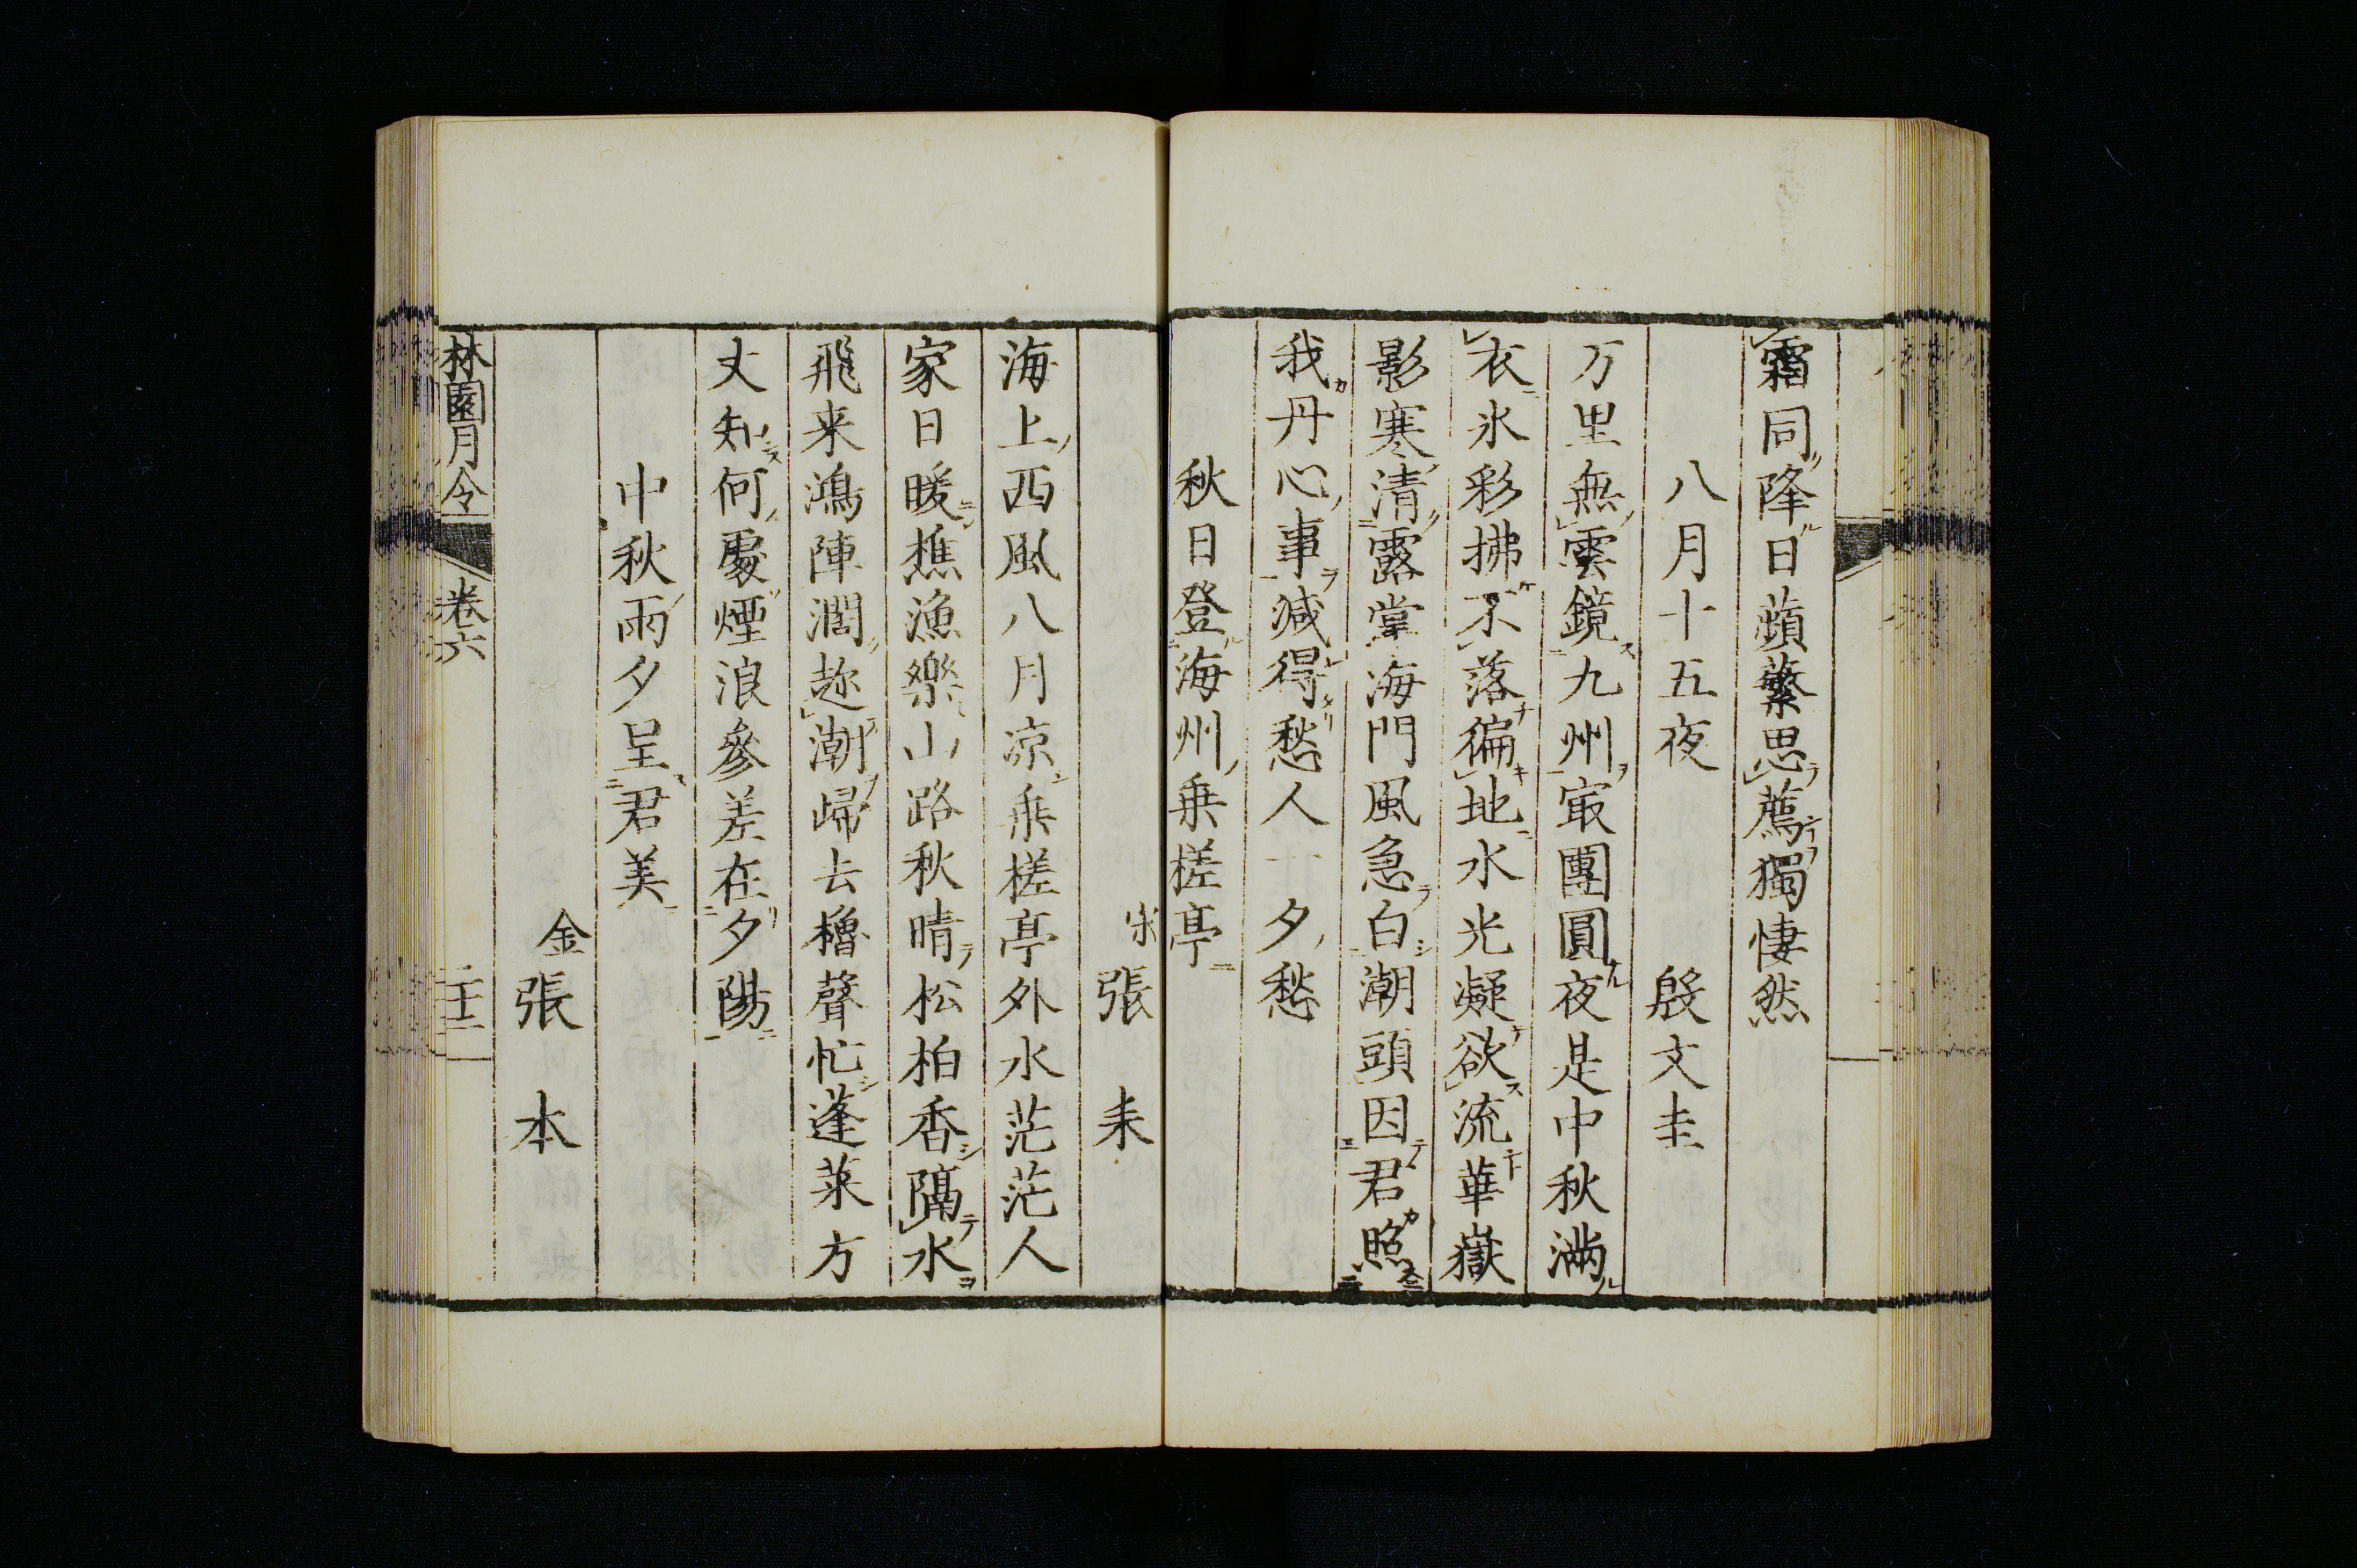 霜同降日蘋蘩思薦獨悽然
八月十五夜 殷文圭
万里無雲鏡九州最團圓夜是中秋滿
衣氷彩拂不落徧地水光凝欲流華嶽
影寒清露掌海門風急白潮頭因君照
我丹心事減得愁人一夕愁
秋日登海州乗槎亭
宋 張耒
海上西風八月凉乗槎亭外水茫茫人
家日暖樵漁樂山路秋晴松柏香隔水
飛来鴻陣濶趂潮歸去櫓聲忙蓬萊方
丈知何處煙浪參差在夕陽
中秋雨夕呈君美
金 張本
林園月令 卷六